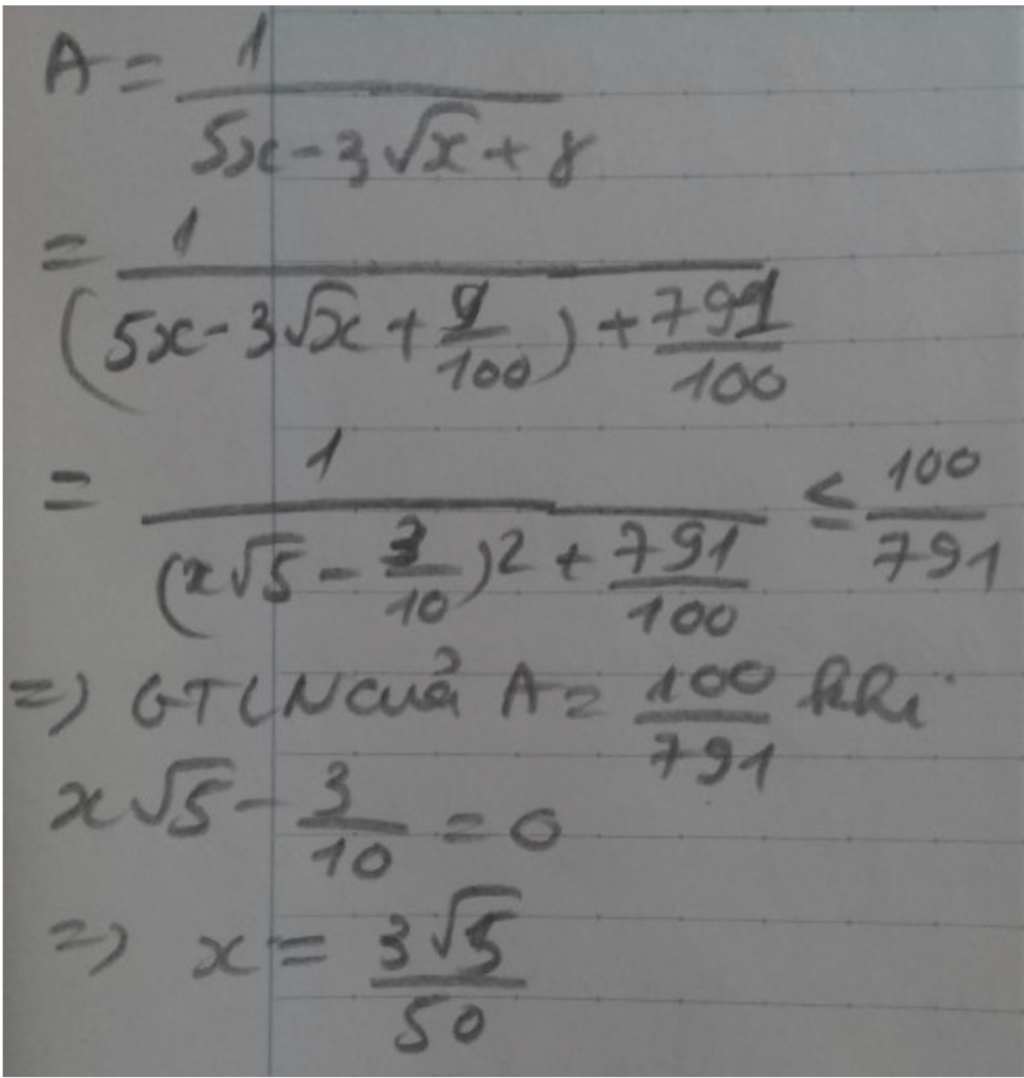 A = 1 / (5x - 3√x + 8)
= 1 / ((5x - 3√x + 9/100) + 791/100)
= 1 / ((x√5 - 3/10)2 + 791/100) ≤ 100/791
=> GTLN của A = 100/791 khi
x√5 - 3/10 = 0
=> x = 3√5/50